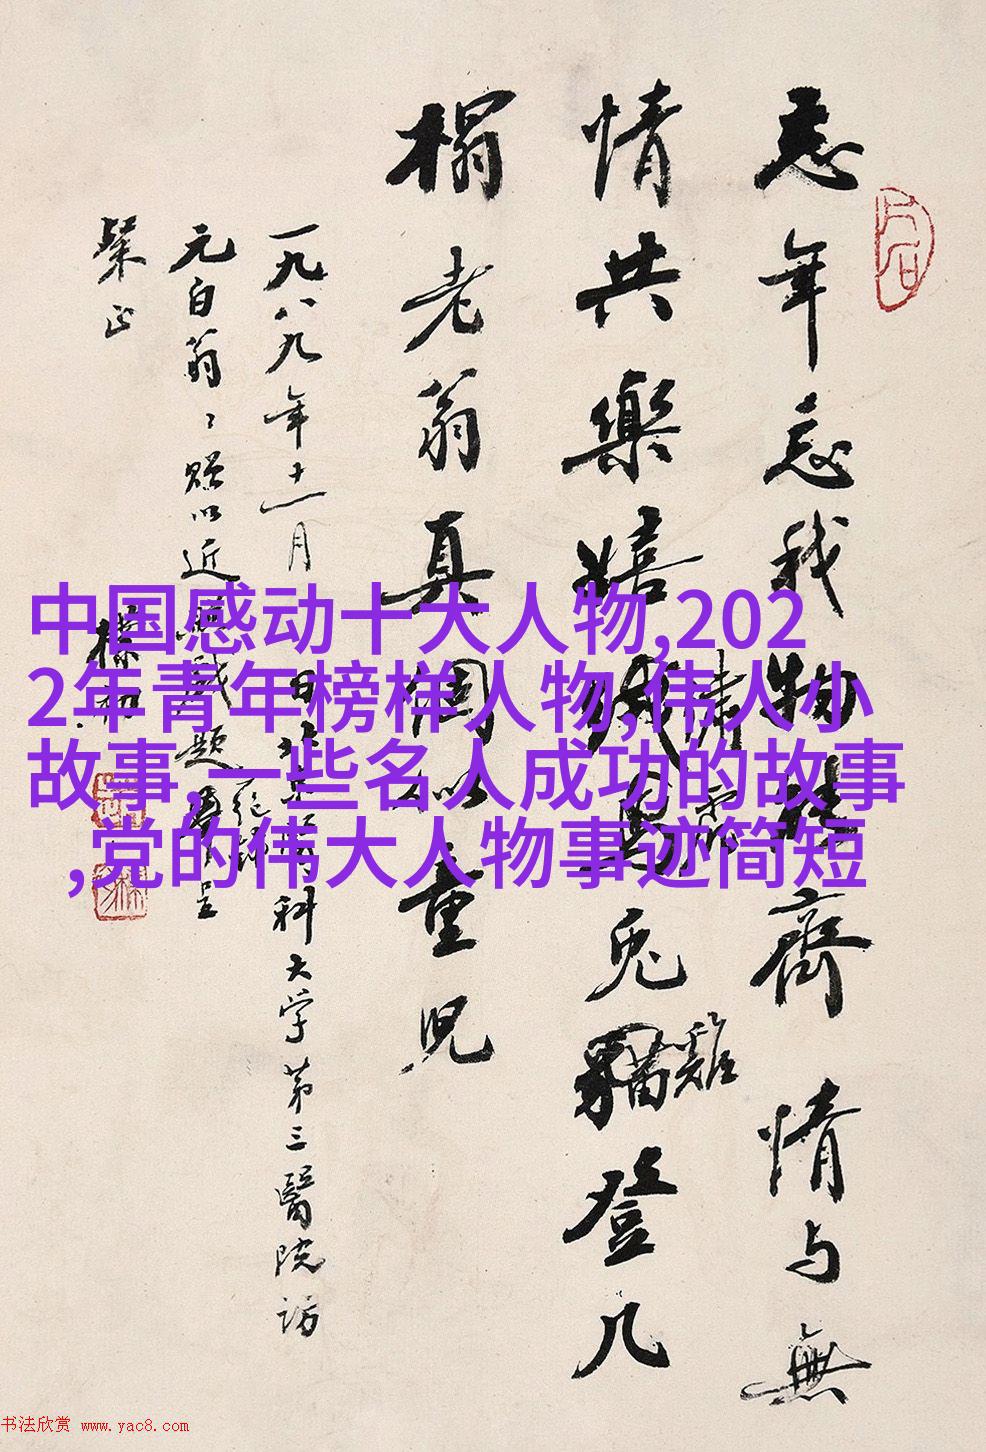 忘年忘我物齊情与無
情共樂嬉兎猫鷄登几
榻老翁真個似重児
一九八九年十一月日北京科大学第三醫院訪
元白翁〻贈以近戲題呈
粲正
樸初
中国感动十大人物,202
2年青年榜样人物,伟人小
故事,一些名人成功的故事
,党的伟大人物事迹简短
书法欣赏 www.yac8.com